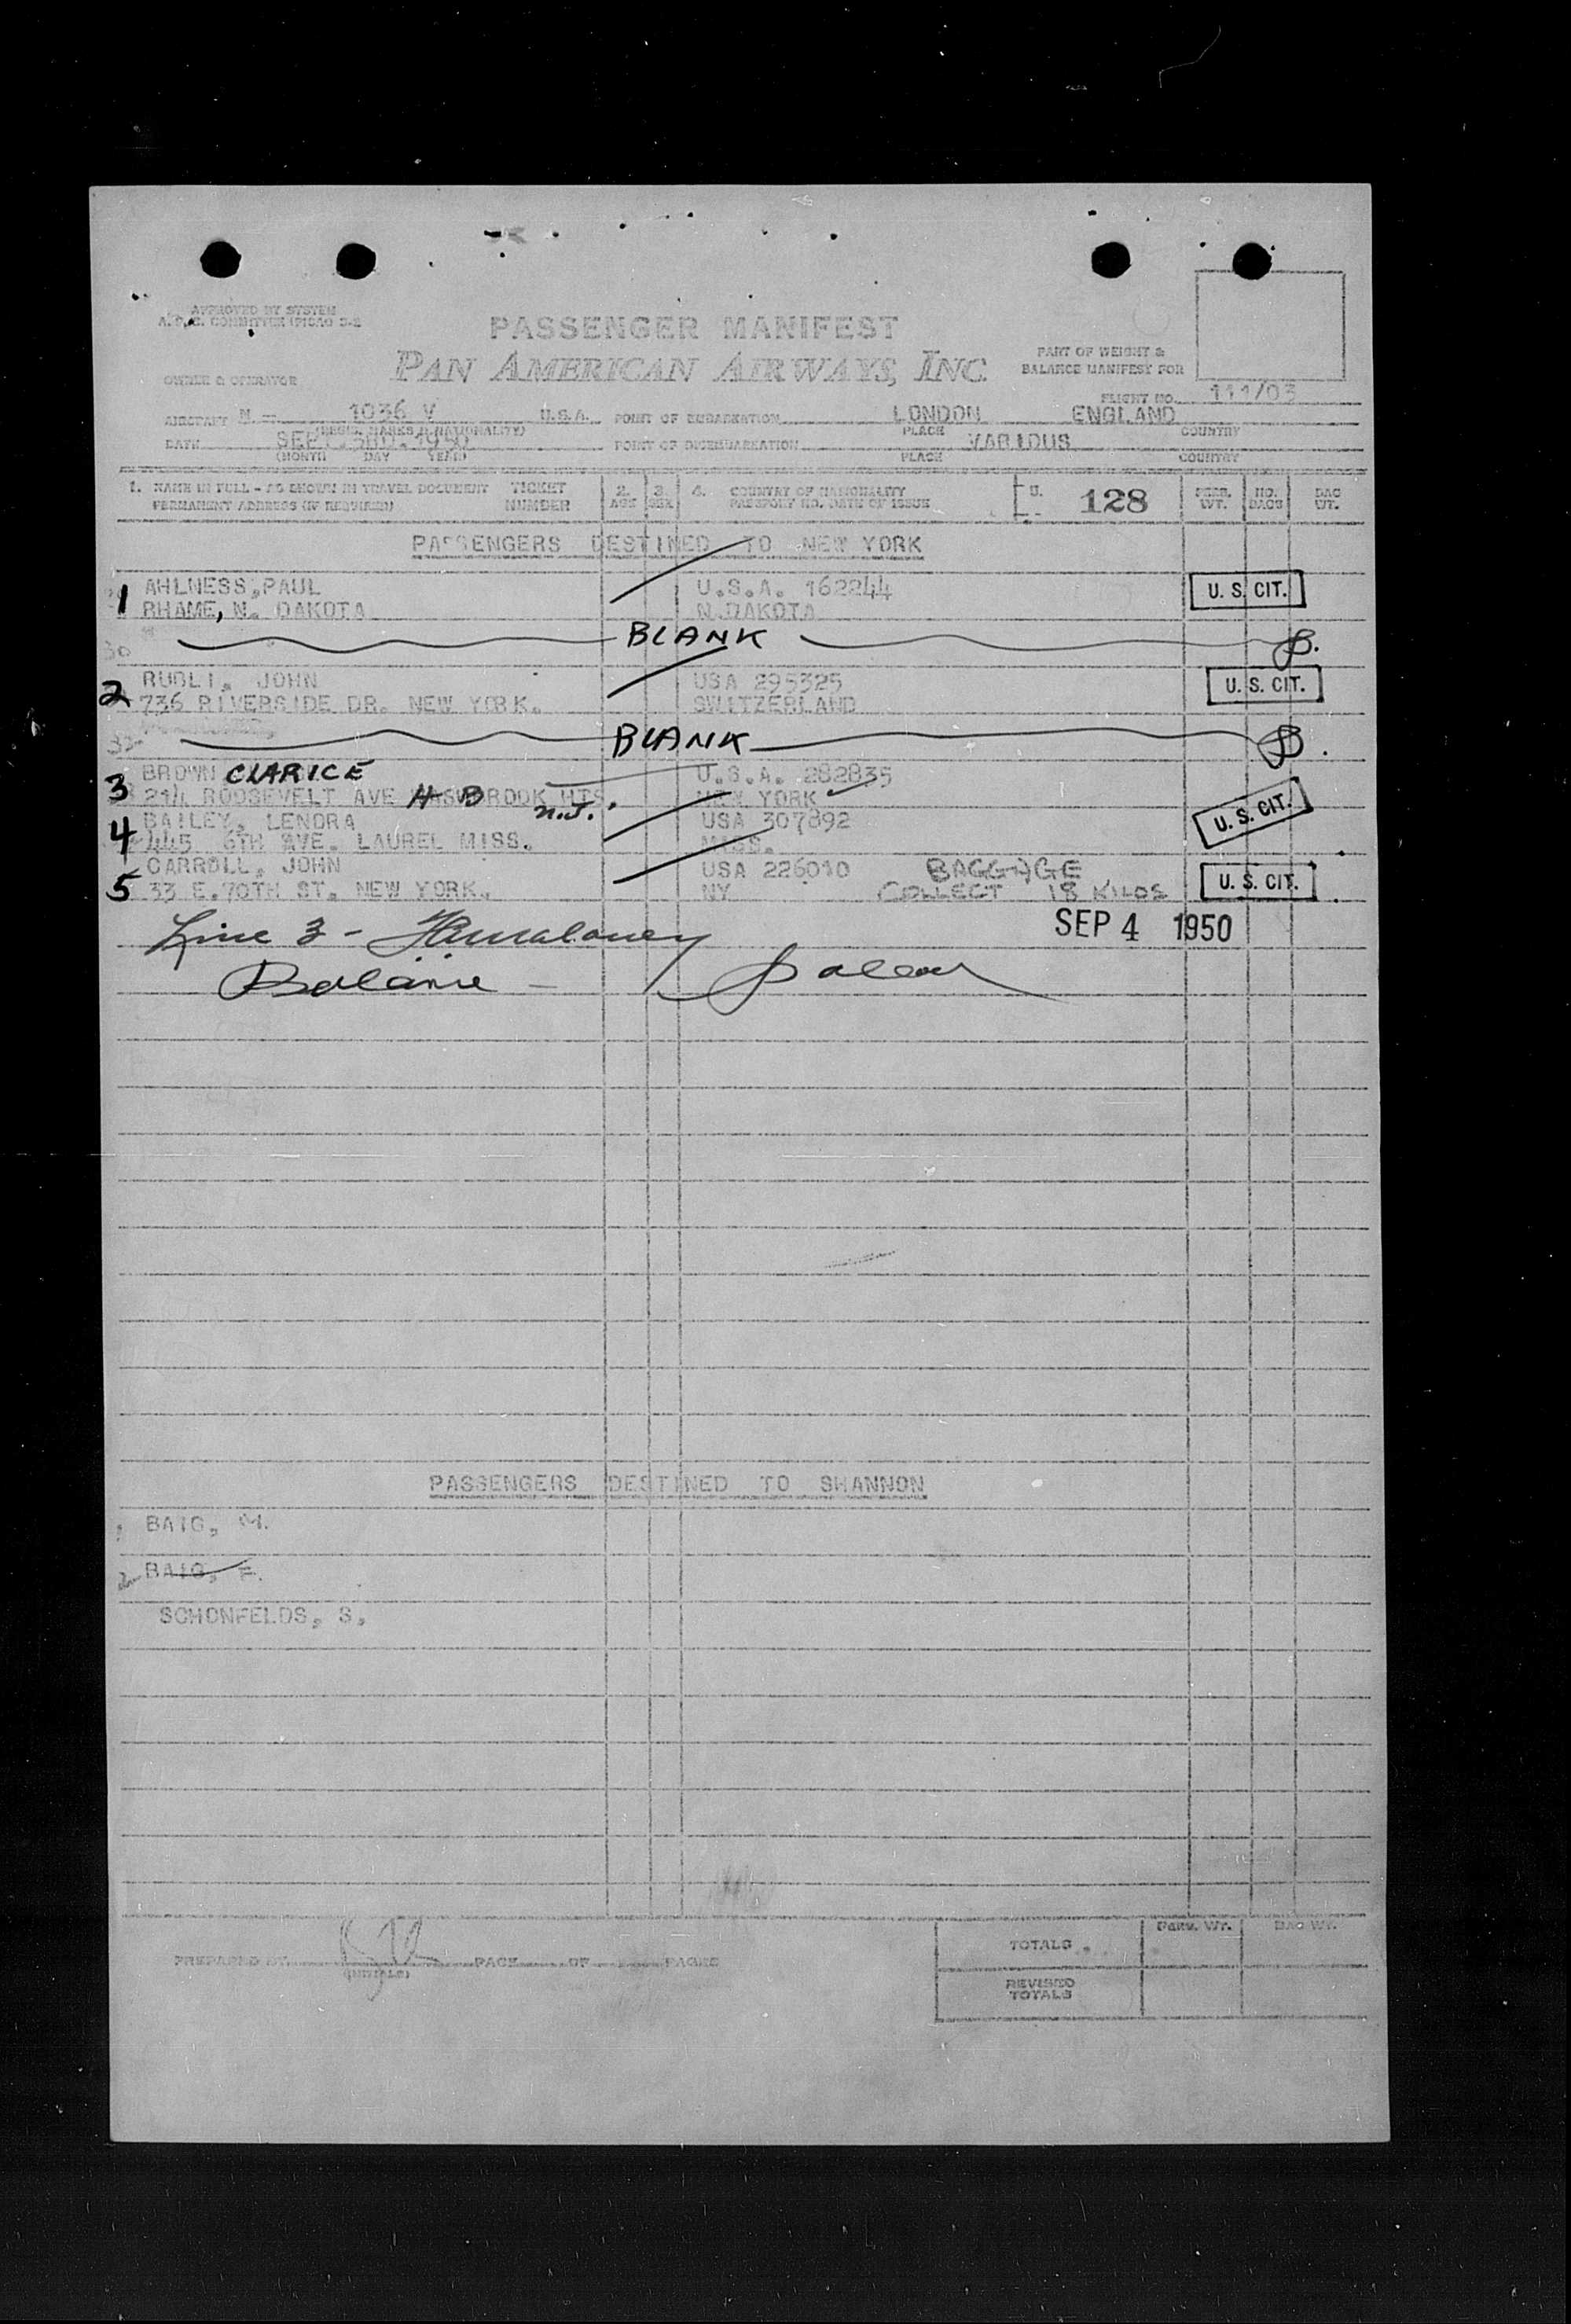 APPROVED BY SYSTEM
PASSENGER MANIFEST
PAN AMERICAN AIRWAYS, INC.
PART OF WEIGHT &
BALANCE MANIFEST FOR
OWNER & OPERATOR
FLIGHT NO. 111/03
AIRCRAFT N - 1036 V U.S.A. POINT OF EMBARKATION LONDON ENGLAND
PLACE COUNTRY
DATE SEPT. 3RD. 1950 POINT OF DISEMBARKATION VARIOUS
(MONTH DAY YEAR) PLACE COUNTRY
1. NAME IN FULL - AS SHOWN IN TRAVEL DOCUMENT TICKET 2. 3. 4. COUNTRY OF NATIONALITY 5. 128 PERS. NO. BAG
PERMANENT ADDRESS (IF REQUIRED) NUMBER AGE SEX PASSPORT NO. DATE OF ISSUE WT. BAGS WT.
PASSENGERS DESTINED TO NEW YORK
1 AHLNESS, PAUL U.S.A. 162244 U. S. CIT.
RHAME, N. DAKOTA N. DAKOTA
30 BLANK B.
2 RUDLI, JOHN USA 295325 U. S. CIT.
736 RIVERSIDE DR. NEW YORK. SWITZERLAND
32 BLANK B.
3 BROWN CLARICE U.S.A. 282835
214 ROOSEVELT AVE HASBROOK HTS N.J. NEW YORK
4 BAILEY, LENORA USA 307892 U. S. CIT.
445 6TH AVE. LAUREL MISS. MISS.
5 CARROLL, JOHN USA 226010 BAGGAGE U. S. CIT.
33 E. 70TH ST. NEW YORK. NY COLLECT 18 KILOS
Line 3 - SEP 4 1950
Balance -
PASSENGERS DESTINED TO SHANNON
BAIG, M.
2 BAIG, F.
SCHONFELDS, S.
PREPARED BY PAGE OF PAGES
(INITIALS)
TOTALS PERS. WT. BAG WT.
REVISED
TOTALS